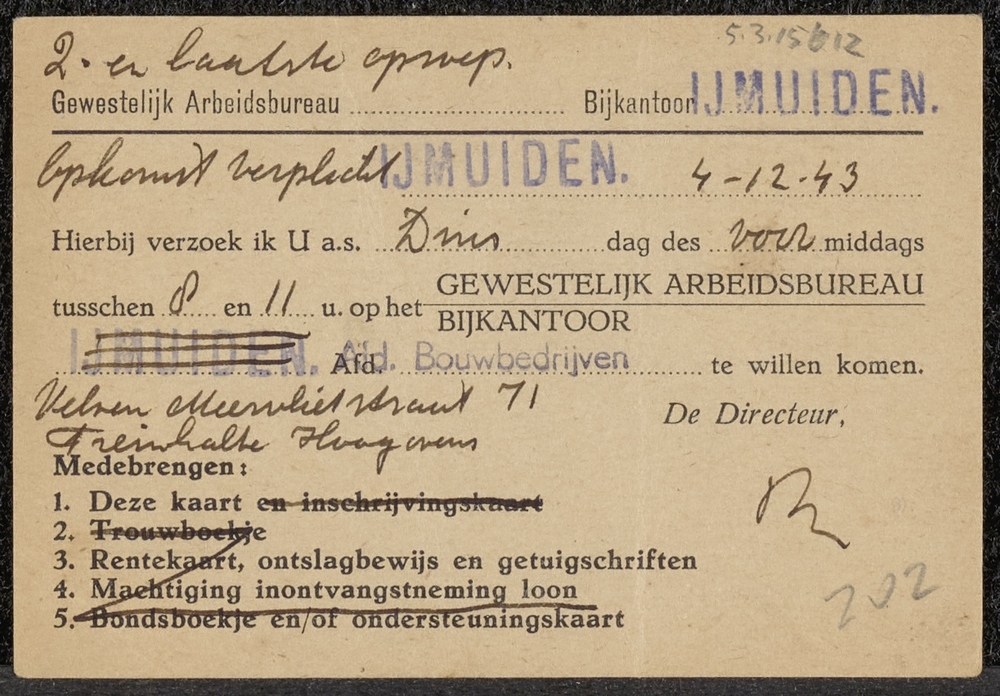 5.3.15612
2e en laatste oproep.
Gewestelijk Arbeidsbureau .......... Bijkantoor IJMUIDEN.
Opkomst verplicht IJMUIDEN. 4-12-43
Hierbij verzoek ik U a.s. Dins dag des voor middags
tusschen 8 en 11 u. op het GEWESTELIJK ARBEIDSBUREAU
BIJKANTOOR
IJMUIDEN. Afd. Afd. Bouwbedrijven te willen komen.
Velsen Meervlietstraat 71
De Directeur,
Treinhalte Hoogovens
Medebrengen:
1. Deze kaart en inschrijvingskaart
2. Trouwboekje
3. Rentekaart, ontslagbewijs en getuigschriften
4. Machtiging inontvangstneming loon
5. Bondsboekje en/of ondersteuningskaart
202